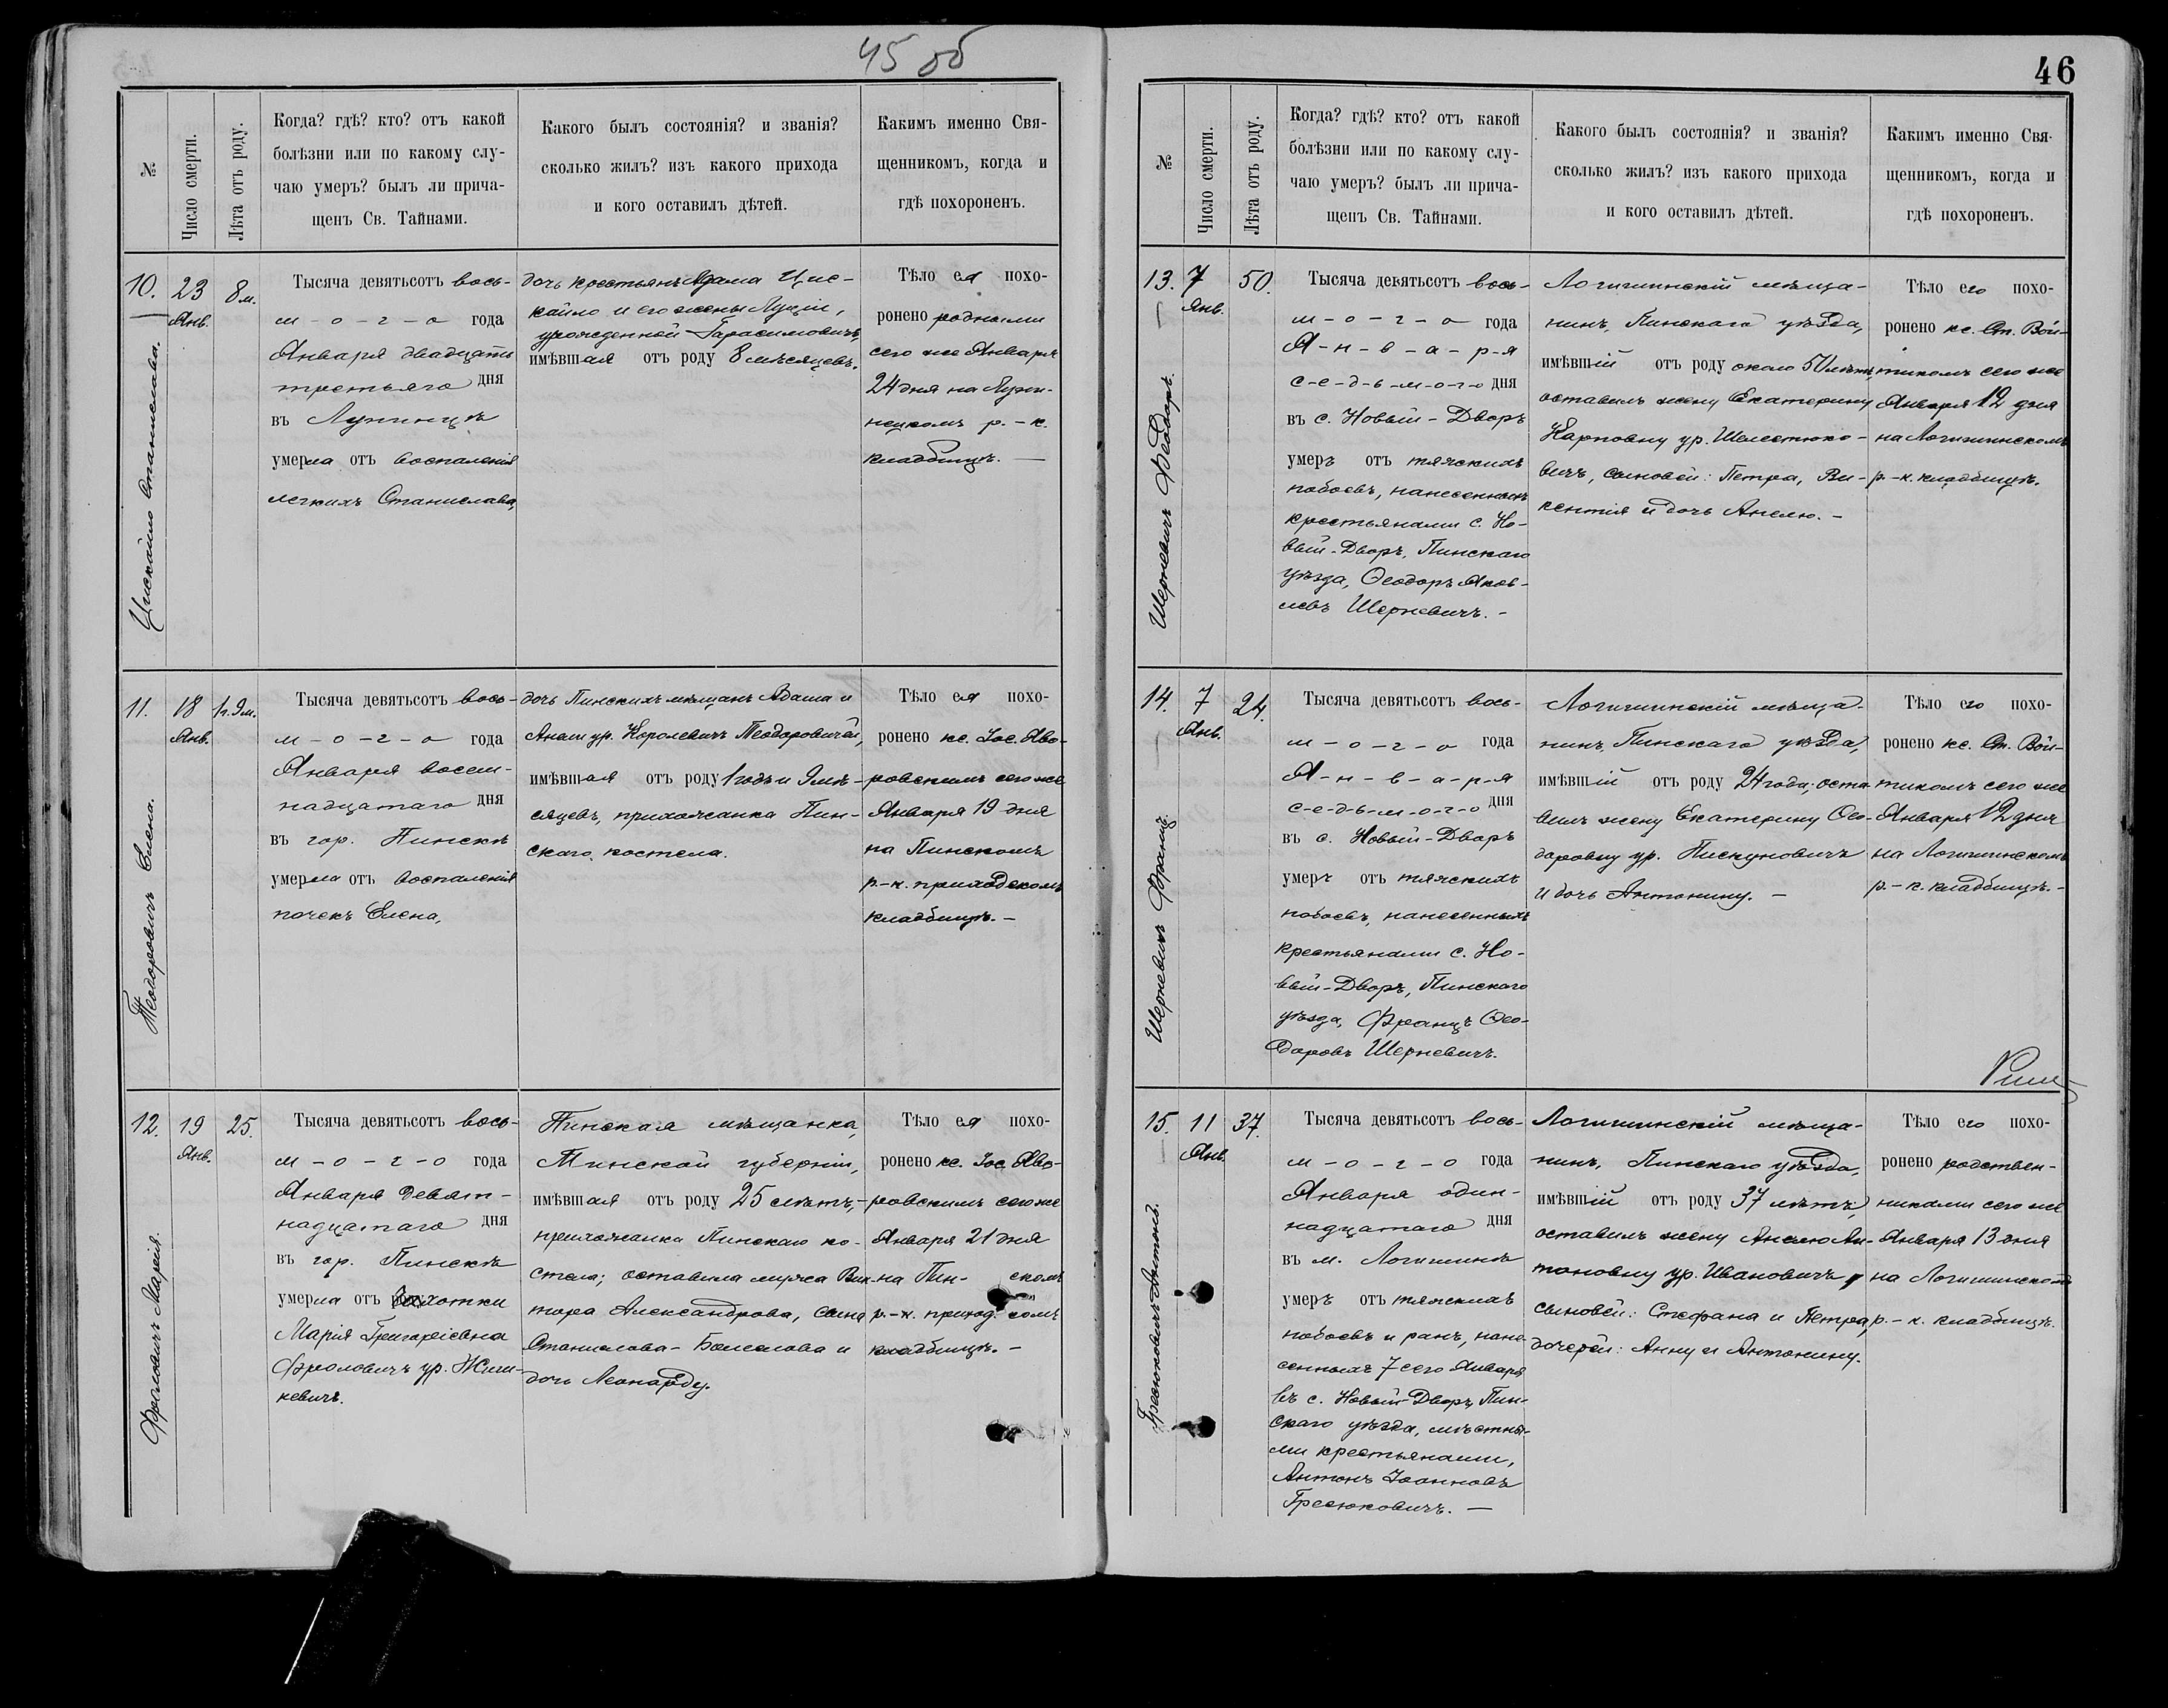 45 об
№
Число смерти.
Лѣта отъ роду.
Когда? гдѣ? кто? отъ какой
болѣзни или по какому слу-
чаю умеръ? былъ ли прича-
щенъ Св. Тайнами.
Какого былъ состоянія? и званія?
сколько жилъ? изъ какого прихода
и кого оставилъ дѣтей.
Какимъ именно Свя-
щенникомъ, когда и
гдѣ похороненъ.
10.
Цискайло Станислава.
23
Янв.
8 м.
Тысяча девятьсотъ вось-
м-о-г-о года
Января двадцать
третьяго дня
въ Лунинцѣ
умерла отъ воспаленія
легкихъ Станислава,
дочь крестьянъ Адама Цис-
кайло и его жены Луціи,
урожденной Гарасимовичъ,
имѣвшая отъ роду 8 мѣсяцевъ.
Тѣло ея похо-
ронено родными
сего же Января
24 дня на Луни-
нецкомъ р.-к.
кладбищѣ. —
11.
Теодоровичъ Елена.
18
Янв.
1 г. 9 м.
Тысяча девятьсотъ вось-
м-о-г-о года
Января восем-
надцатаго дня
въ гор. Пинскѣ
умерла отъ воспаленія
почекъ Елена,
дочь Пинскихъ мѣщанъ Адама и
Анели ур. Королевичъ Теодоровичей,
имѣвшая отъ роду 1 годъ и 9 мѣ-
сяцевъ, прихожанка Пин-
скаго костела.
Тѣло ея похо-
ронено кс. Іос. Або-
ровскимъ сего же
Января 19 дня
на Пинскомъ
р.-к. приходскомъ
кладбищѣ. —
12.
Фроловичъ Марія.
19
Янв.
25.
Тысяча девятьсотъ вось-
м-о-г-о года
Января девят-
надцатаго дня
въ гор. Пинскѣ
умерла отъ чахотки
Марія Григоріевна
Фроловичъ ур. Жиги-
кевичъ.
Пинская мѣщанка,
Минской губерніи,
имѣвшая отъ роду 25 лѣтъ,-
прихожанка Пинскаго ко-
стела; оставила мужа Вик-
тора Александрова, сына
Станислава-Болеслава и
дочь Леонарду.
Тѣло ея похо-
ронено кс. Іос. Або-
ровскимъ сего же
Января 21 дня
на Пин- скомъ
р.-к. приход. комъ
кладбищѣ. —
46
№
Число смерти.
Лѣта отъ роду.
Когда? гдѣ? кто? отъ какой
болѣзни или по какому слу-
чаю умеръ? былъ ли прича-
щенъ Св. Тайнами.
Какого былъ состоянія? и званія?
сколько жилъ? изъ какого прихода
и кого оставилъ дѣтей.
Какимъ именно Свя-
щенникомъ, когда и
гдѣ похороненъ.
13.
Шерневичъ Ѳеодоръ.
7
Янв.
50.
Тысяча девятьсотъ вось-
м-о-г-о года
Я-н-в-а-р-я
с-е-д-ь-м-о-г-о дня
въ с. Новый-Дворъ
умеръ отъ тяжскихъ
побоевъ, нанесенныхъ
крестьянами с. Но-
вый-Дворъ, Пинскаго
уѣзда, Ѳеодоръ Яков-
левъ Шерневичъ. -
Логишинскій мѣща-
нинъ, Пинскаго уѣзда,
имѣвшій отъ роду около 50 лѣтъ,
оставилъ жену Екатерину
Карповну ур. Шелестюко-
вичъ, сыновей: Петра, Ви-
кентія и дочь Анелю. -
Тѣло его похо-
ронено кс. Ст. Вой-
тикомъ сего же
Января 12 дня
на Логишинскомъ
р.-к. кладбищѣ.
14.
Шерневичъ Францъ.
7
Янв.
24.
Тысяча девятьсотъ вось-
м-о-г-о года
Я-н-в-а-р-я
с-е-д-ь-м-о-г-о дня
въ с. Новый-Дворъ
умеръ отъ тяжскихъ
побоевъ, нанесенныхъ
крестьянами с. Но-
вый-Дворъ, Пинскаго
уѣзда, Францъ Ѳео-
доровъ Шерневичъ.
Логишинскій мѣща-
нинъ, Пинскаго уѣзда,
имѣвшій отъ роду 24 года; оста-
вилъ жену Екатерину Ѳео-
доровну ур. Пискуновичъ
и дочь Антонину. —
Тѣло его похо-
ронено кс. Ст. Вой-
тикомъ сего же
Января 12 дня
на Логишинскомъ
р.-к. кладбищѣ. -
15.
Гресюковичъ Антонъ.
11
Янв.
37.
Тысяча девятьсотъ вось-
м-о-г-о года
Января один-
надцатаго дня
въ м. Логишинѣ
умеръ отъ тяжскихъ
побоевъ и ранъ, нане-
сенныхъ 7 сего Января
въ с. Новый-Дворъ, Пин-
скаго уѣзда, мѣстны-
ми крестьянами,
Антонъ Іоанновъ
Гресюковичъ. —
Логишинскій мѣща-
нинъ, Пинскаго уѣзда,
имѣвшій отъ роду 37 лѣтъ;
оставилъ жену Анелю Ан-
тоновну ур. Ивановичъ,
сыновей: Стефана и Петра,
дочерей: Анну и Антонину.
Тѣло его похо-
ронено родствен-
никами сего же
Января 13 дня
на Логишинскомъ
р.-к. кладбищѣ.